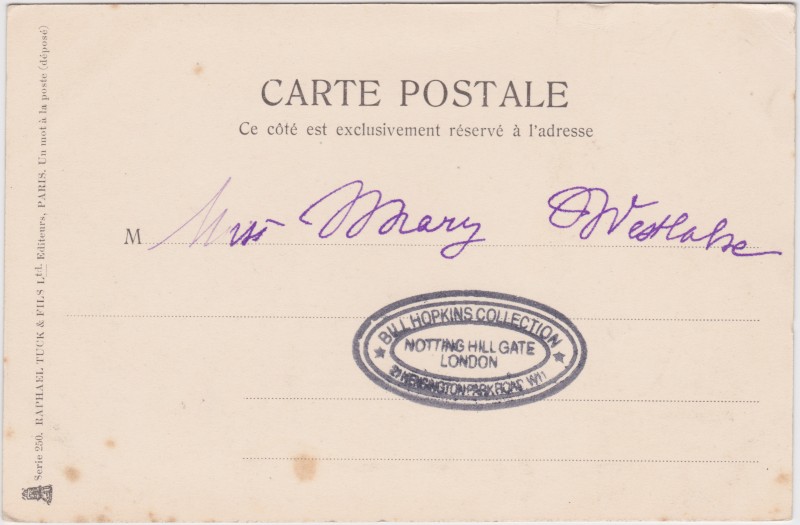 CARTE POSTALE
Ce côté est exclusivement réservé à l'adresse
M Miss Mary Westlake
BILL HOPKINS COLLECTION
NOTTING HILL GATE
LONDON
KENSINGTON PARK ROAD, W11
Serie 250. RAPHAEL TUCK & FILS Ltd. Editeurs, PARIS. Un mot à la poste (déposé)